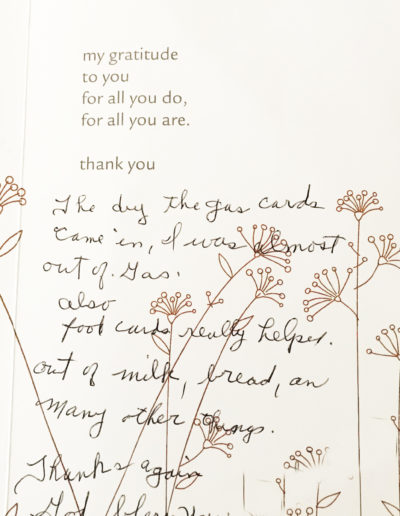 my gratitude
to you
for all you do,
for all you are.
thank you
The day the gas cards
came in, I was almost
out of. Gas.
also
food cards really helped.
out of milk, bread, an
many other things.
Thanks again
God bless You